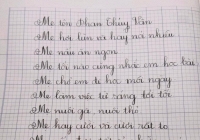 Mẹ tên Phan Thùy Vân
Mẹ hơi lùn và hay nói nhiều
Mẹ nấu ăn ngon
Mẹ tôi nào cũng nhắc em học bài
Mẹ chở em đi học mỗi ngày
Mẹ làm việc từ sáng tới tối
Mẹ nuôi gà nuôi thỏ
Mẹ hay cười và cười rất to